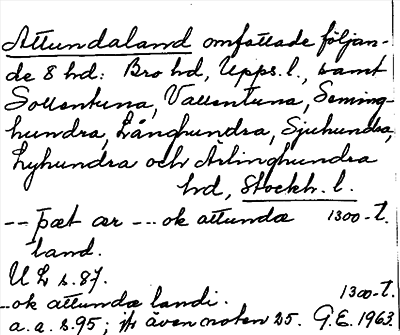 Attundaland omfattade följan-
de 8 hd: Bro hd, Upps. l., samt
Sollentuna, Vallentuna, Seming-
hundra, Långhundra, Sjuhundra,
Lyhundra och Ärlinghundra
hd, Stockh. l.
-- þæt ær --- ok attundæ 1300-t.
land.
U L s. 87.
--ok attundæ landi. 1300-t.
a. a. s. 95; jfr även noten 25. G.E. 1963.